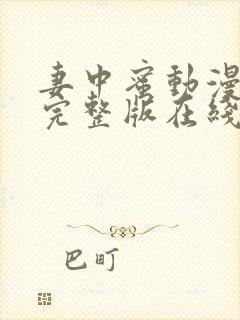 妻中蜜動漫
完整版在綫
巴町